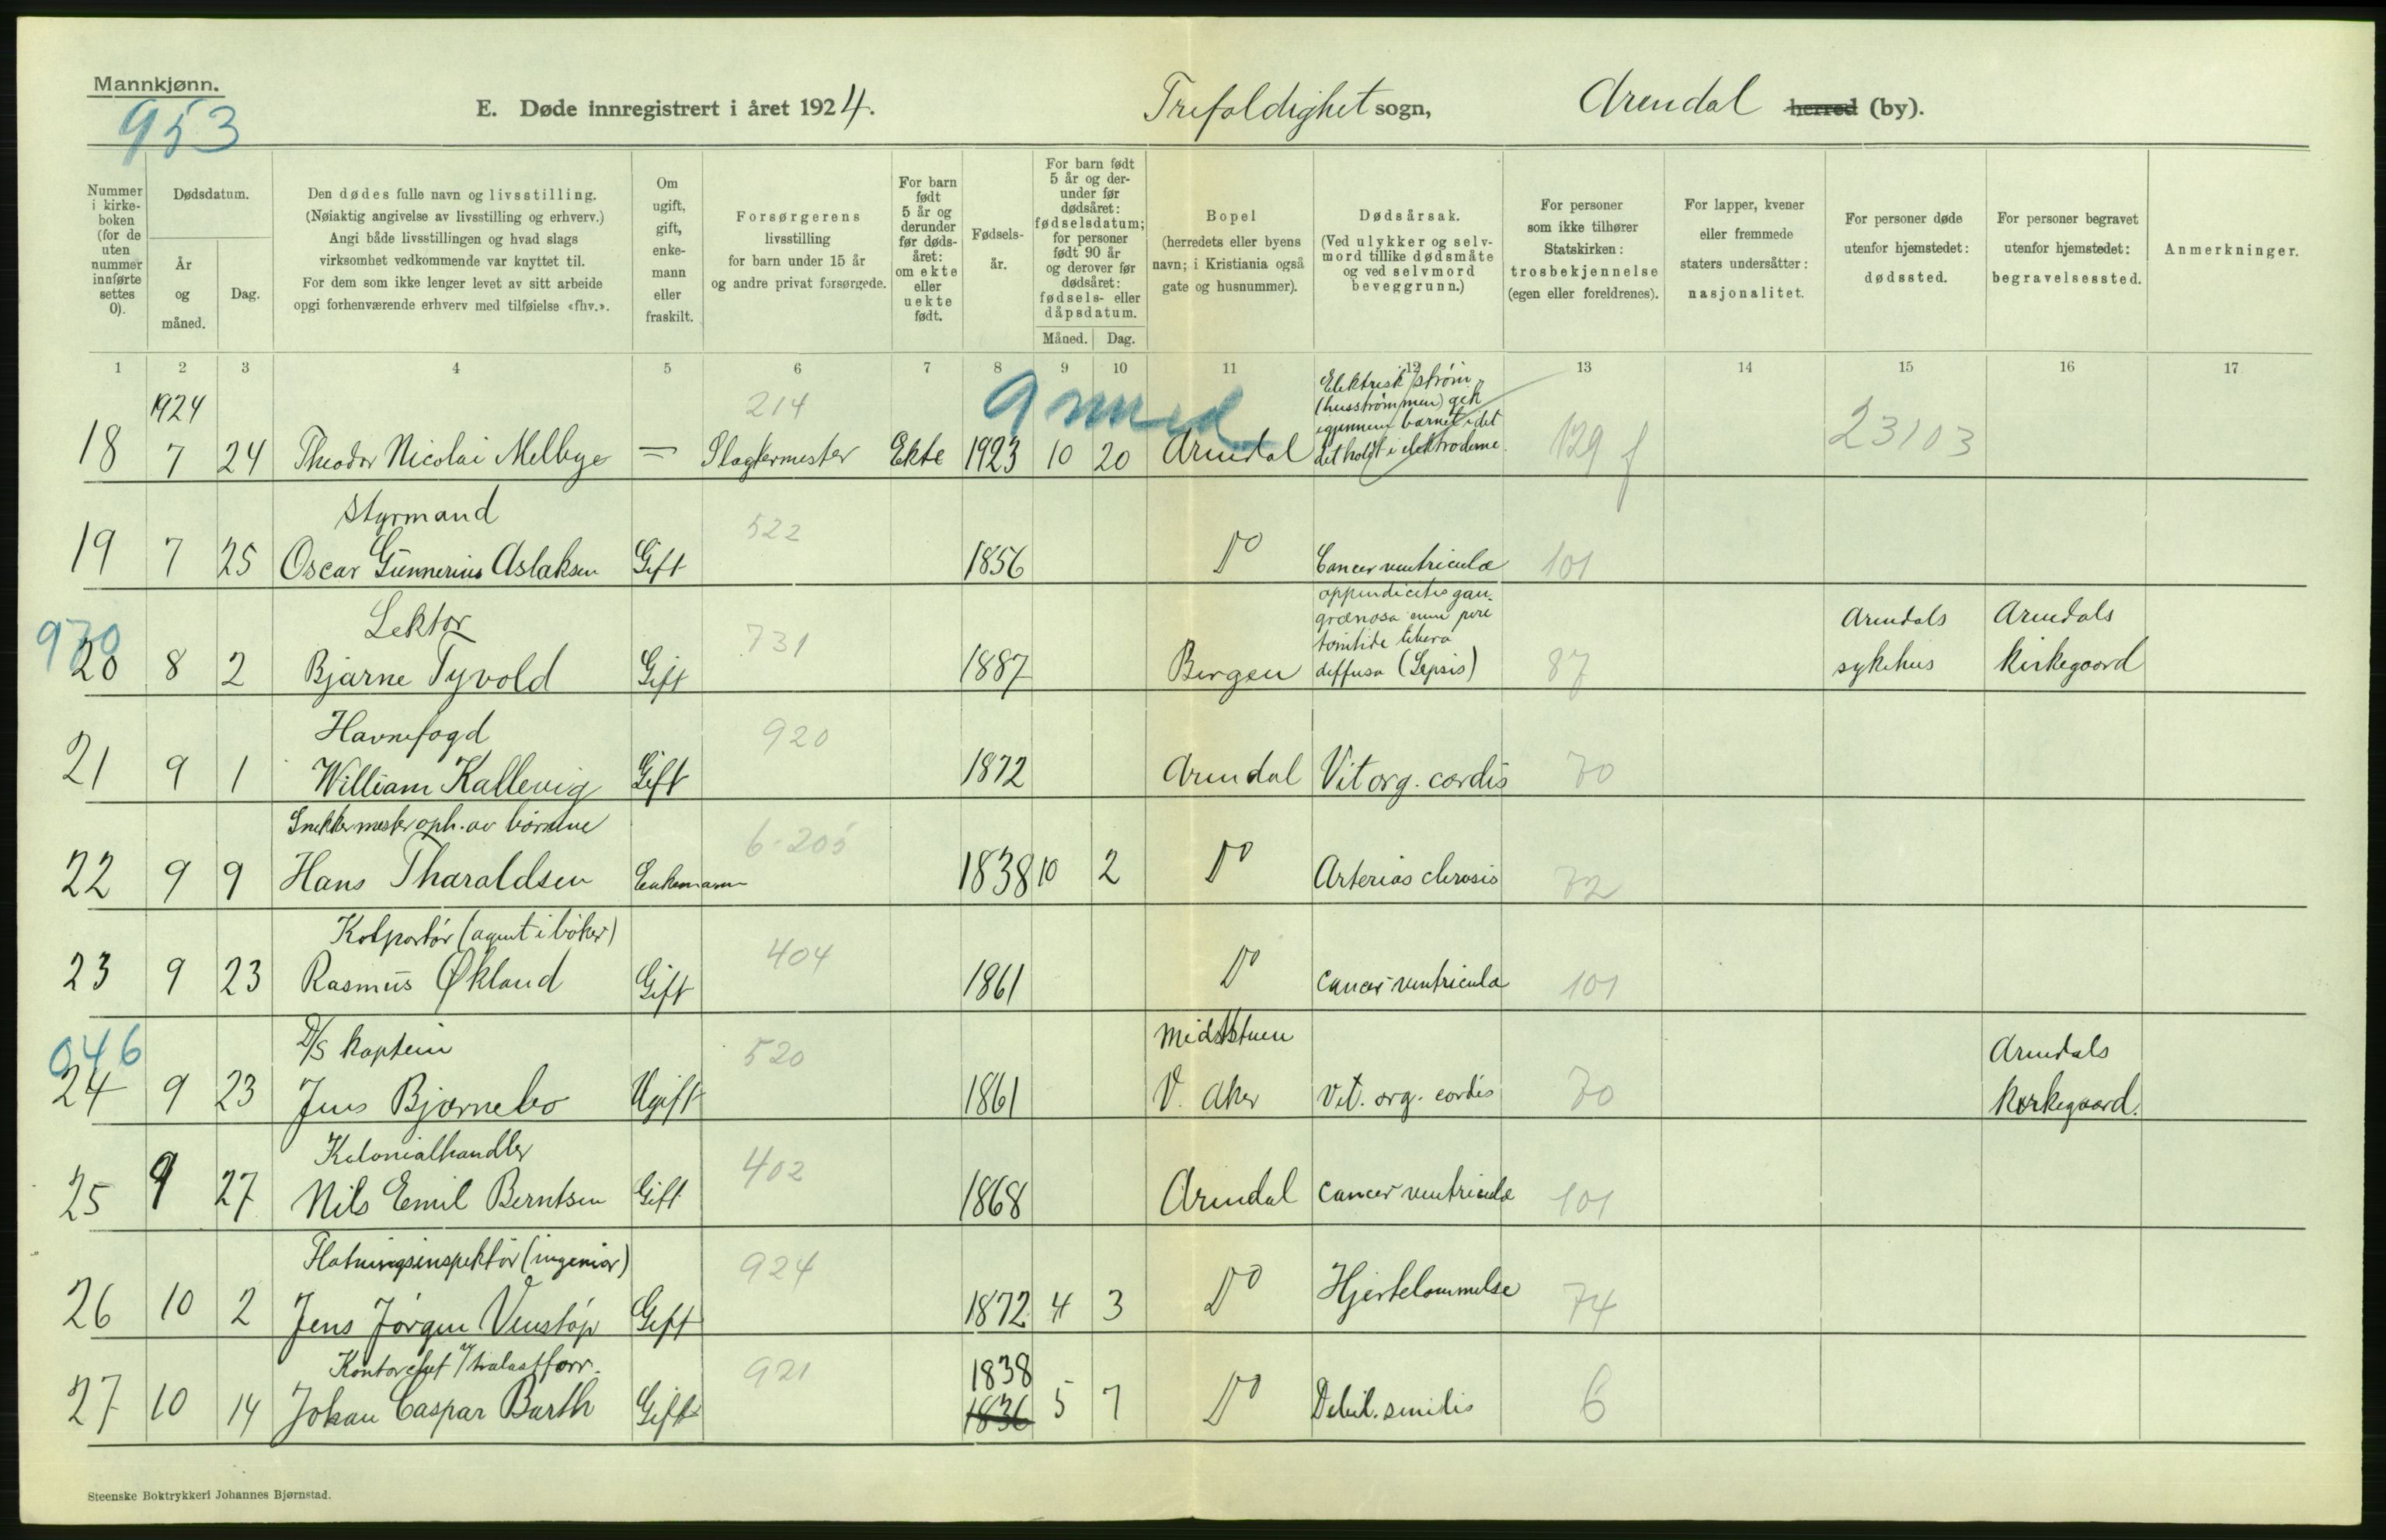 Mannkjønn.
953
E. Døde innregistrert i året 1924.
Trefoldighet sogn,
Arendal herred (by).
Nummer i kirkeboken (for de uten nummer innførte settes 0).
Dødsdatum.
År og måned.
Dag.
Den dødes fulle navn og livsstilling.
(Nøiaktig angivelse av livsstilling og erhverv.)
Angi både livsstillingen og hvad slags
virksomhet vedkommende var knyttet til.
For dem som ikke lenger levet av sitt arbeide
opgi forhenværende erhverv med tilføielse «fhv.».
Om ugift, gift, enkemann eller fraskilt.
Forsørgerens livsstilling
for barn under 15 år
og andre privat forsørgede.
For barn født 5 år og derunder før dødsåret: om ekte eller uekte født.
Fødselsår.
For barn født 5 år og derunder før dødsåret: fødselsdatum; for personer født 90 år og derover før dødsåret: fødsels- eller dåpsdatum.
Måned. Dag.
Bopel
(herredets eller byens
navn; i Kristiania også
gate og husnummer).
Dødsårsak.
(Ved ulykker og selvmord tillike dødsmåte og ved selvmord beveggrunn.)
For personer
som ikke tilhører
Statskirken:
trosbekjennelse
(egen eller foreldrenes).
For lapper, kvener
eller fremmede
staters undersåtter:
nasjonalitet.
For personer døde
utenfor hjemstedet:
dødssted.
For personer begravet
utenfor hjemstedet:
begravelsessted.
Anmerkninger.
1 2 3 4 5 6 7 8 9 10 11 12 13 14 15 16 17
1924 214 9 mned Elektrisk strøm
(husstrømmen) gik
igjennem barnet idet
18 7 24 Theodor Nicolai Melbye — Slagtermester Ekte 1923 10 20 Arendal det holdt i elektroderne. 129 f 23103
Styrmand 522
19 7 25 Oscar Gunnerius Aslaksen Gift 1856 Do Cancer ventriculæ 101
appendicitis gan-
970 Lektor 731 grænosa cum peri Arendals Arendals
tonitide libera
20 8 2 Bjarne Tyvold Gift 1887 Bergen diffusa (Sepsis) 87 sykehus kirkegaard
Havnefogd 920
21 9 1 William Kallevig Gift 1872 Arendal Vit org. cordis 70
Snekkermester oph. av børnene 6-205
22 9 9 Hans Tharaldsen Enkemann 1838 10 2 Do Arteriosclerosis 72
Kolportør (agent i bøker) 404
23 9 23 Rasmus Økland Gift 1861 Do Cancer ventriculæ 101
046 D/S kaptein 520 Midtstuen Arendals
24 9 23 Jens Bjørnebo Ugift 1861 V. Aker Vit. org. cordis 70 kirkegaard.
Kolonialhandler 402
25 9 27 Nils Emil Berntsen Gift 1868 Arendal Cancer ventriculæ 101
Fløtningsinspektør (ingeniør) 924
26 10 2 Jens Jørgen Venstøp Gift 1872 4 3 Do Hjertelammelse 74
Kontorchef v/ trælastforr. 921 1838
27 10 14 Johan Caspar Barth Gift 1836 5 7 Do Debil. senilis 6
Steenske Boktrykkeri Johannes Bjørnstad.